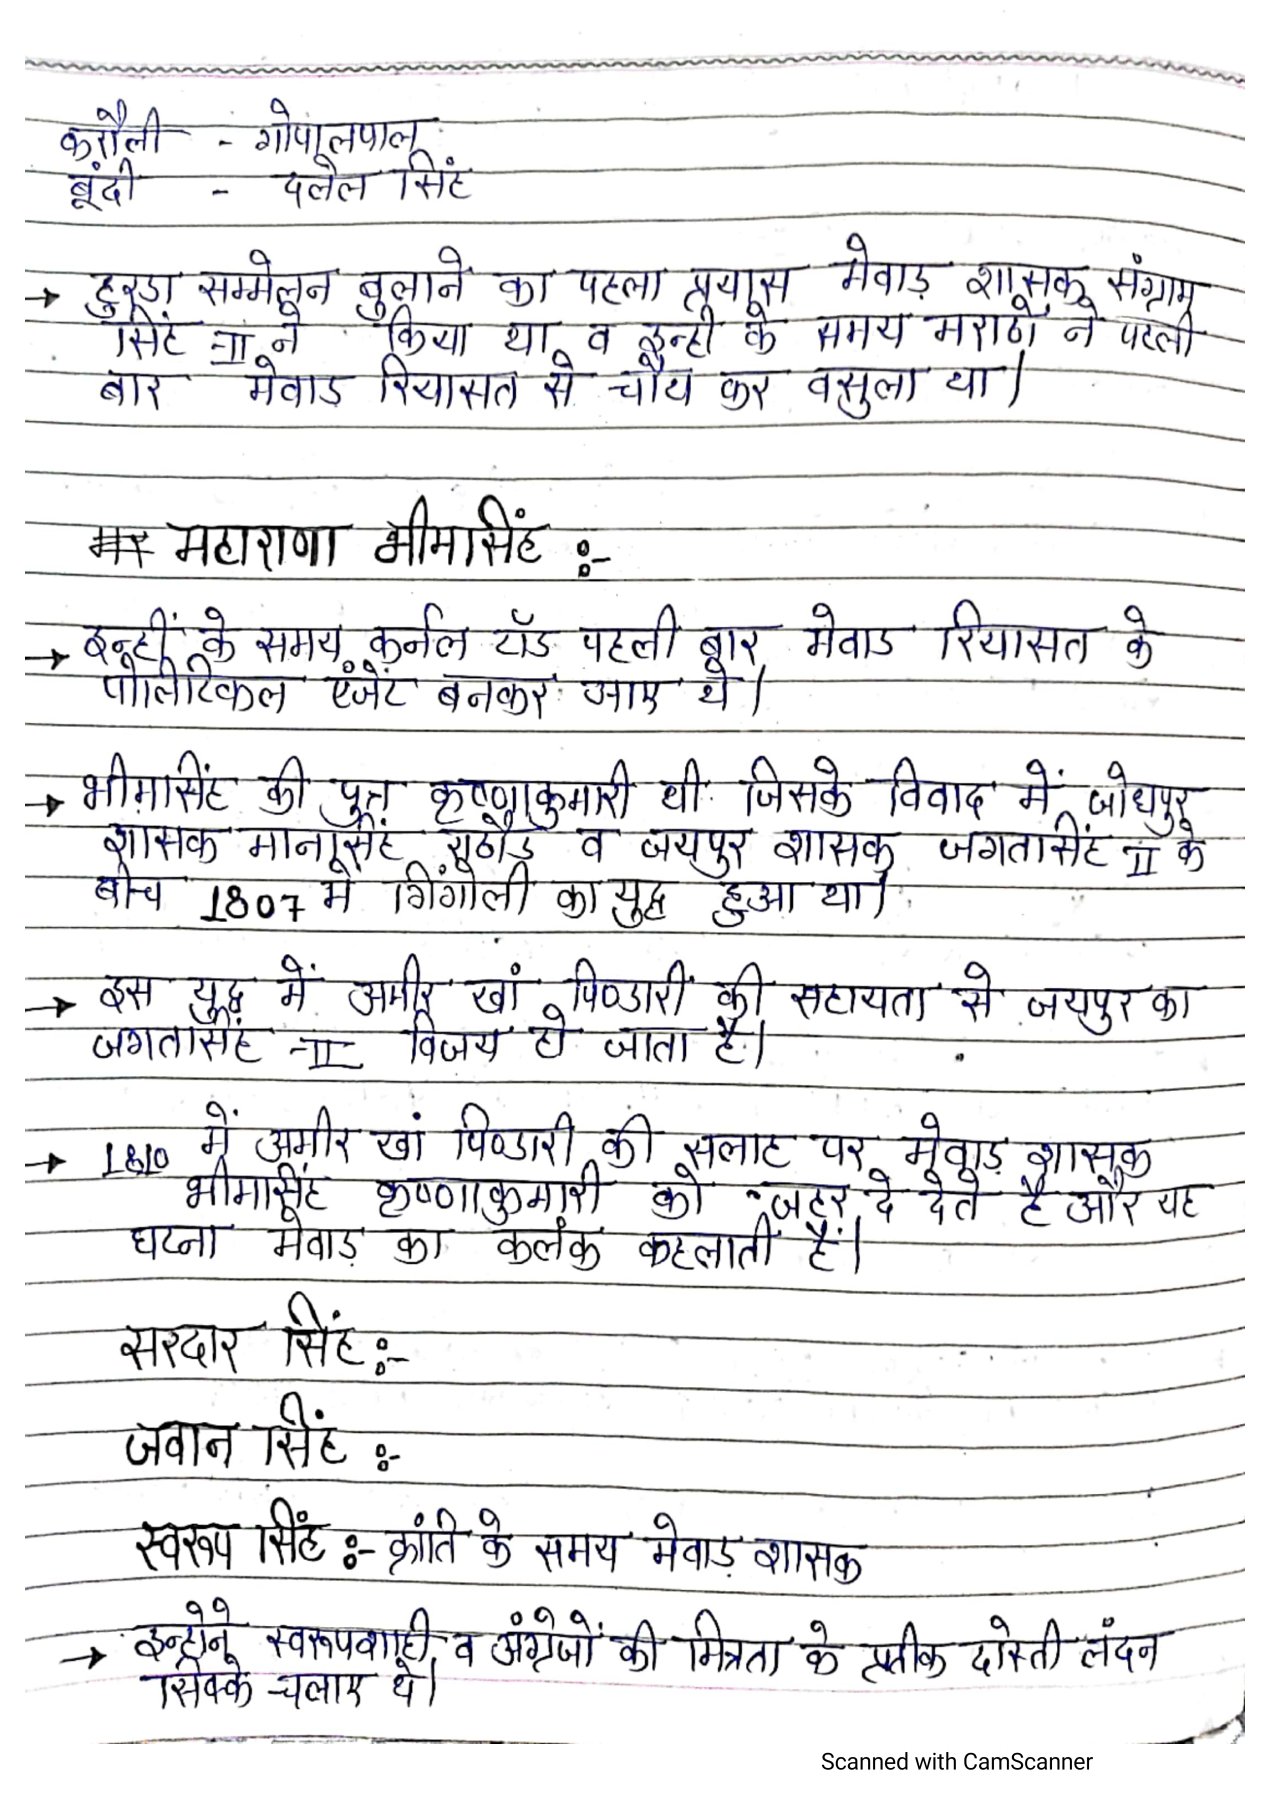 करौली - गोपालपाल
बूंदी - दलेल सिंह
→ हुरडा सम्मेलन बुलाने का पहला प्रयास मेवाड़ शासक संग्राम
सिंह -II ने किया था व इन्ही के समय मराठों ने पहली
बार मेवाड़ रियासत से चौथ कर वसुला था।
महाराणा भीमसिंह :-
→ इन्हीं के समय कर्नल टॉड पहली बार मेवाड रियासत के
पोलिटिकल एजेंट बनकर आए थे।
→ भीमसिंह की पुत्र कृष्णाकुमारी थी जिसके विवाद में जोधपुर
शासक मानसिंह राठौड व जयपुर शासक जगतसिंह II के
बीच 1807 में गिंगोली का युद्ध हुआ था।
→ इस युद्ध में अमीर खां पिण्डारी की सहायता से जयपुर का
जगतसिंह -II विजय हो जाता है।
→ 1810 में अमीर खां पिण्डारी की सलाह पर मेवाड़ शासक
भीमसिंह कृष्णाकुमारी को जहर दे देते है और यह
घटना मेवाड़ का कलंक कहलाती हैं।
सरदार सिंह :-
जवान सिंह :-
स्वरूप सिंह :- क्रांति के समय मेवाड़ शासक
→ इन्होने स्वरूपशाही व अंग्रेजों की मित्रता के प्रतीक दोस्ती लंदन
सिक्के चलाए थे।
Scanned with CamScanner